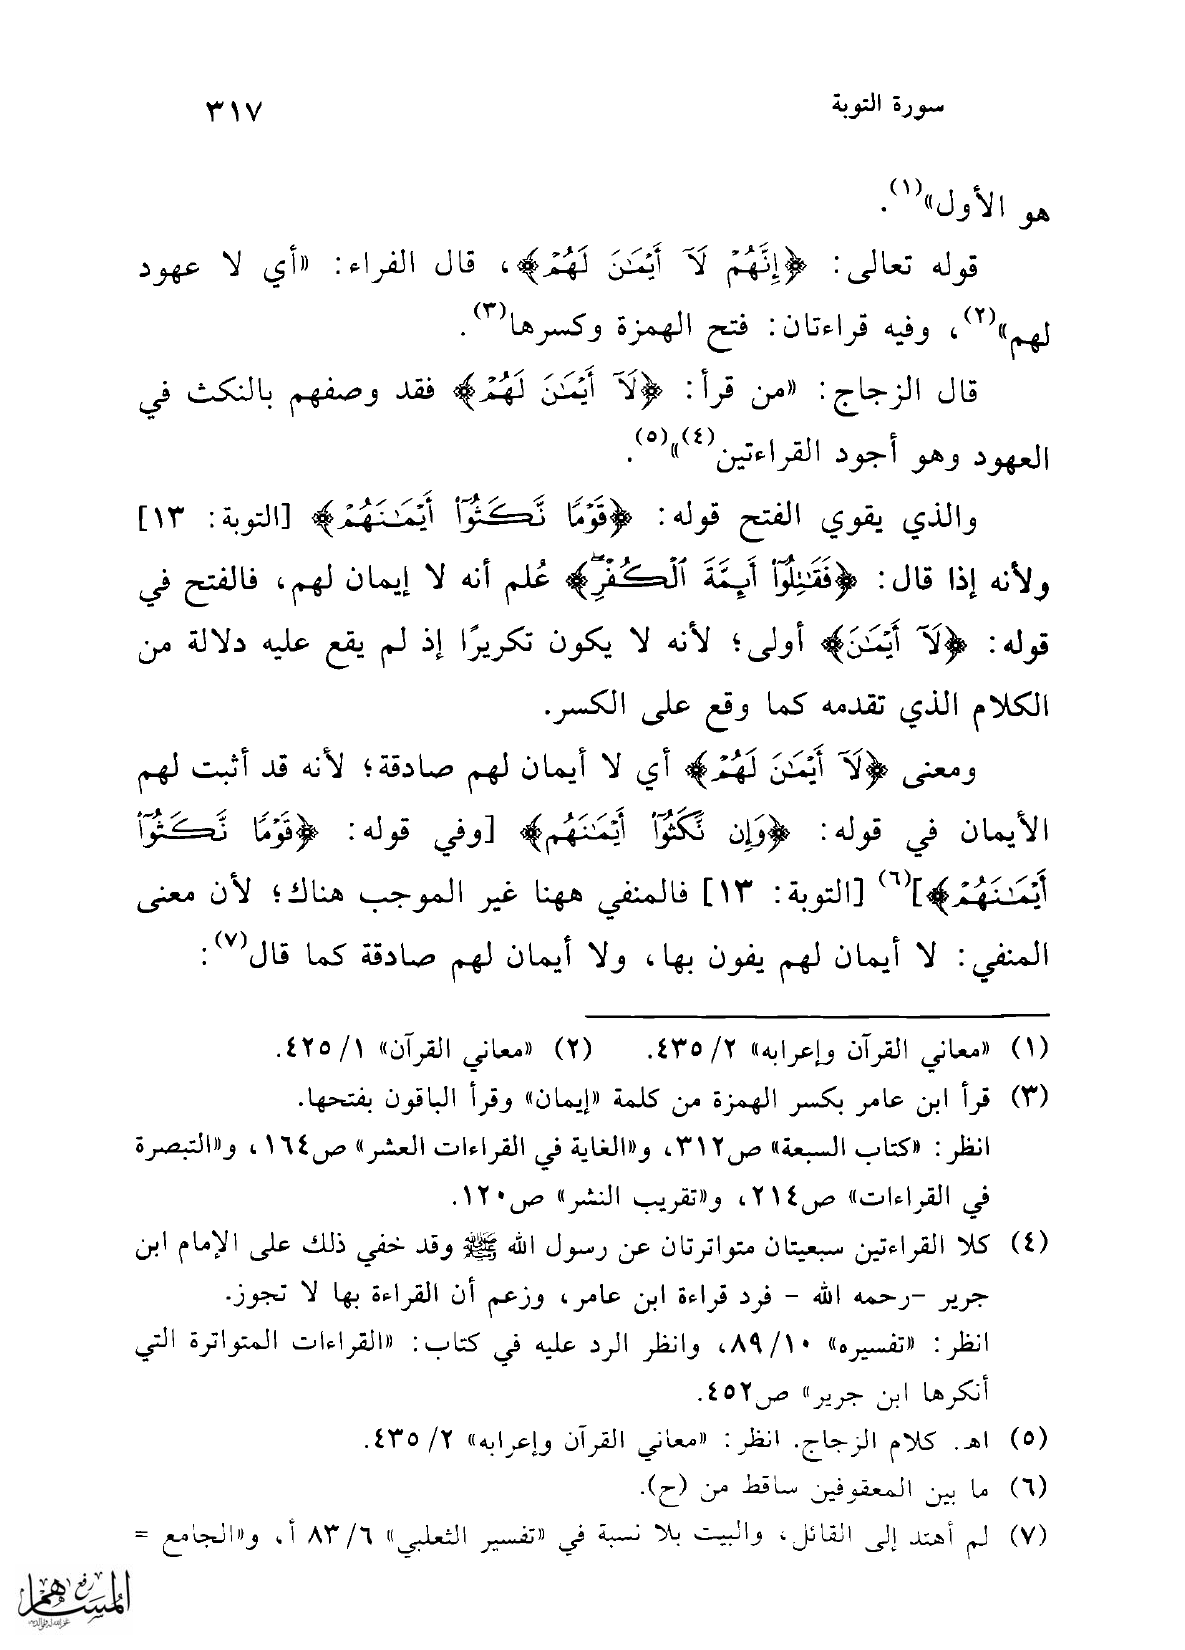 سورة التوبة ٣١٧
هو الأول»(١).
قوله تعالى: ﴿إِنَّهُمْ لَآ أَيْمَٰنَ لَهُمْ﴾، قال الفراء: «أي لا عهود
لهم»(٢)، وفيه قراءتان: فتح الهمزة وكسرها(٣).
قال الزجاج: «من قرأ: ﴿لَآ أَيْمَٰنَ لَهُمْ﴾ فقد وصفهم بالنكث في
العهود وهو أجود القراءتين(٤)»(٥).
والذي يقوي الفتح قوله: ﴿قَوْمًا نَّكَثُوٓاْ أَيْمَٰنَهُمْ﴾ [التوبة: ١٣]
ولأنه إذا قال: ﴿فَقَٰتِلُوٓاْ أَئِمَّةَ ٱلْكُفْرِ﴾ عُلم أنه لا إيمان لهم، فالفتح في
قوله: ﴿لَآ أَيْمَٰنَ﴾ أولى؛ لأنه لا يكون تكريرًا إذ لم يقع عليه دلالة من
الكلام الذي تقدمه كما وقع على الكسر.
ومعنى ﴿لَآ أَيْمَٰنَ لَهُمْ﴾ أي لا أيمان لهم صادقة؛ لأنه قد أثبت لهم
الأيمان في قوله: ﴿وَإِن نَّكَثُوٓاْ أَيْمَٰنَهُم﴾ [وفي قوله: ﴿قَوْمًا نَّكَثُوٓاْ
أَيْمَٰنَهُمْ﴾](٦) [التوبة: ١٣] فالمنفي ههنا غير الموجب هناك؛ لأن معنى
المنفي: لا أيمان لهم يفون بها، ولا أيمان لهم صادقة كما قال(٧):
(١) «معاني القرآن وإعرابه» ٢/ ٤٣٥. (٢) «معاني القرآن» ١/ ٤٢٥.
(٣) قرأ ابن عامر بكسر الهمزة من كلمة «إيمان» وقرأ الباقون بفتحها.
انظر: «كتاب السبعة» ص٣١٢، و«الغاية في القراءات العشر» ص١٦٤، و«التبصرة
في القراءات» ص٢١٤، و«تقريب النشر» ص١٢٠.
(٤) كلا القراءتين سبعيتان متواترتان عن رسول الله ﷺ وقد خفي ذلك على الإمام ابن
جرير -رحمه الله - فرد قراءة ابن عامر، وزعم أن القراءة بها لا تجوز.
انظر: «تفسيره» ١٠/ ٨٩، وانظر الرد عليه في كتاب: «القراءات المتواترة التي
أنكرها ابن جرير» ص٤٥٢.
(٥) اهـ. كلام الزجاج. انظر: «معاني القرآن وإعرابه» ٢/ ٤٣٥.
(٦) ما بين المعقوفين ساقط من (ح).
(٧) لم أهتد إلى القائل، والبيت بلا نسبة في «تفسير الثعلبي» ٦/ ٨٣ أ، و«الجامع =